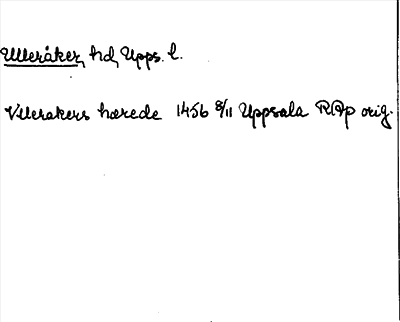 Ulleråker, hd, Upps. l.
Vllerakers hærede 1456 8/11 Uppsala RAp orig.